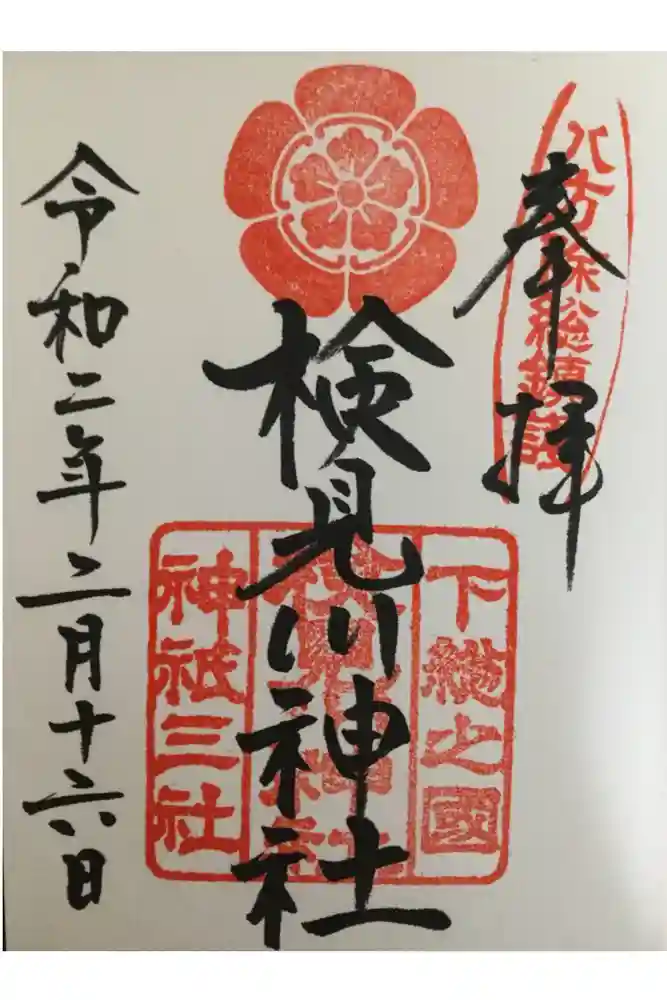 奉拝
八方除総鎮護
検見川神社
下総之國
検見川神社
神祇三社
令和二年二月十六日